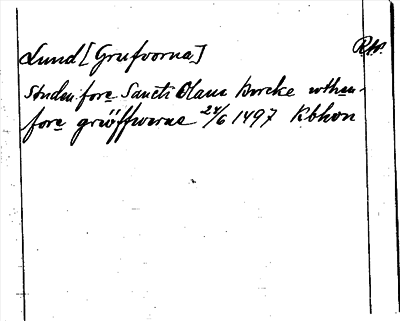 Lund [Grufvorna] Rtp.
Synden fore Sancti Olaus kyrcke wthan-
fore grüffworne 24/6 1497 Kbhvn